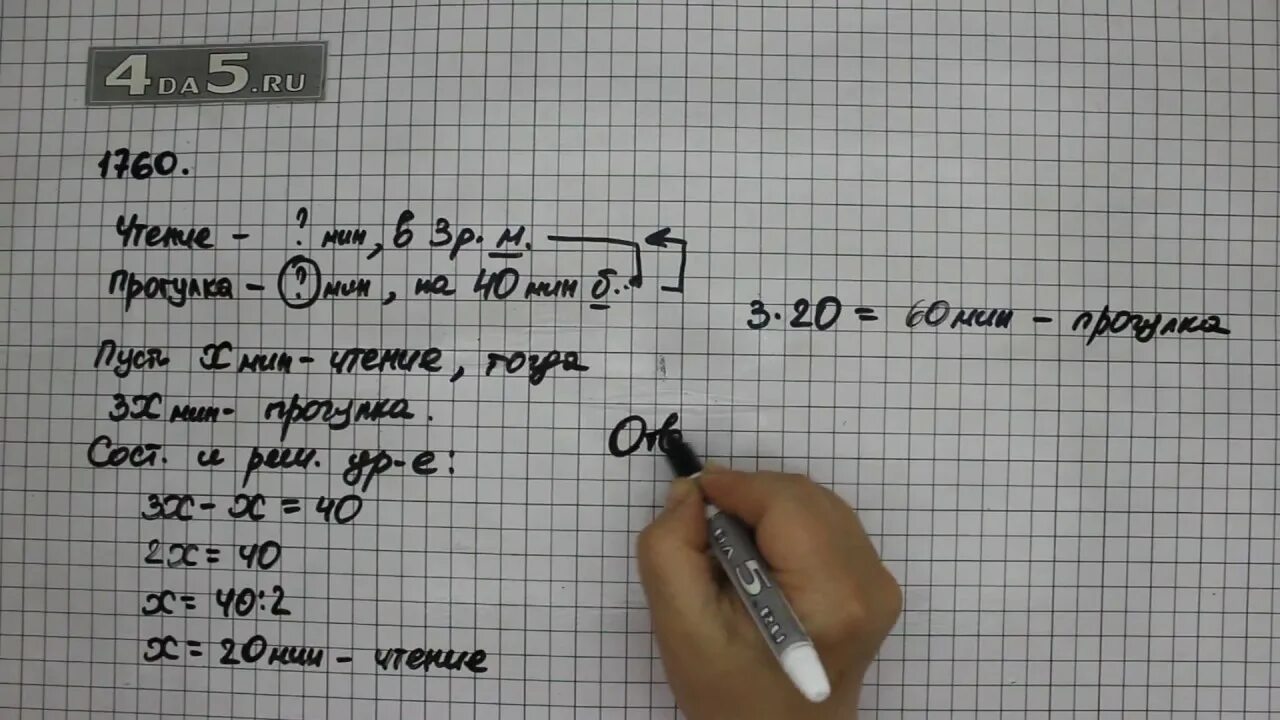 4DA5.RU
1760.
Чтение - ? мин, в 3р. м.
Прогулка - ? мин, на 40 мин б.
Пусть x мин - чтение, тогда
3x мин - прогулка.
Сост. и реш. ур-е:
3x - x = 40
2x = 40
x = 40:2
x = 20 мин - чтение
3·20 = 60 мин - прогулка
Отв